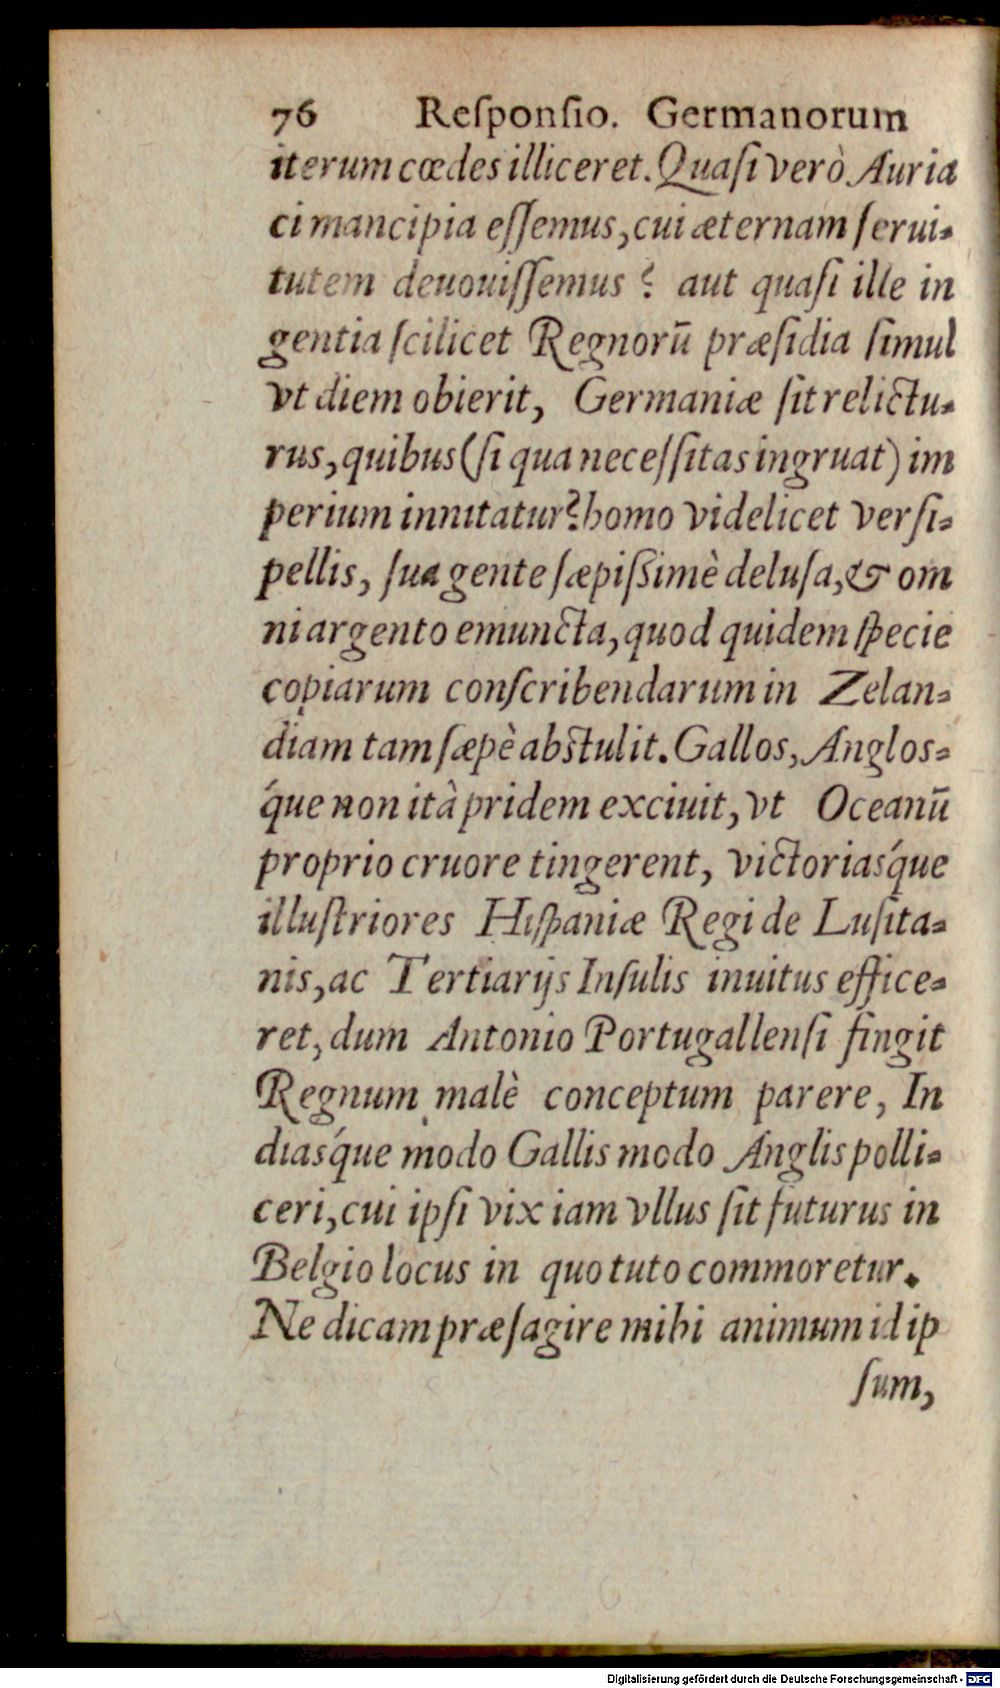 76 Reſponſio. Germanorum
iterum cœdes illiceret. Quaſi verò Auria
ci mancipia eſſemus, cui æternam ſerui-
tutem deuouiſſemus? aut quaſi ille in
gentia ſcilicet Regnorū præſidia ſimul
vt diem obierit, Germaniæ ſit relictu-
rus, quibus (ſi qua neceſſitas ingruat) im
perium innitatur? homo videlicet verſi-
pellis, ſua gente ſæpiſſimè deluſa, & om
ni argento emuncta, quod quidem ſpecie
copiarum conſcribendarum in Zelan-
diam tam ſæpè abſtulit. Gallos, Anglos-
q́ue non ità pridem exciuit, vt Oceanū
proprio cruore tingerent, victoriasq́ue
illuſtriores Hiſpaniæ Regi de Luſita-
nis, ac Tertiarijs Inſulis inuitus effice-
ret, dum Antonio Portugallenſi fingit
Regnum malè conceptum parere, In
diasq́ue modo Gallis modo Anglis polli-
ceri, cui ipſi vix iam vllus ſit futurus in
Belgio locus in quo tuto commoretur.
Ne dicam præſagire mihi animum id ip
ſum,
Digitalisierung gefördert durch die Deutsche Forschungsgemeinschaft - DFG